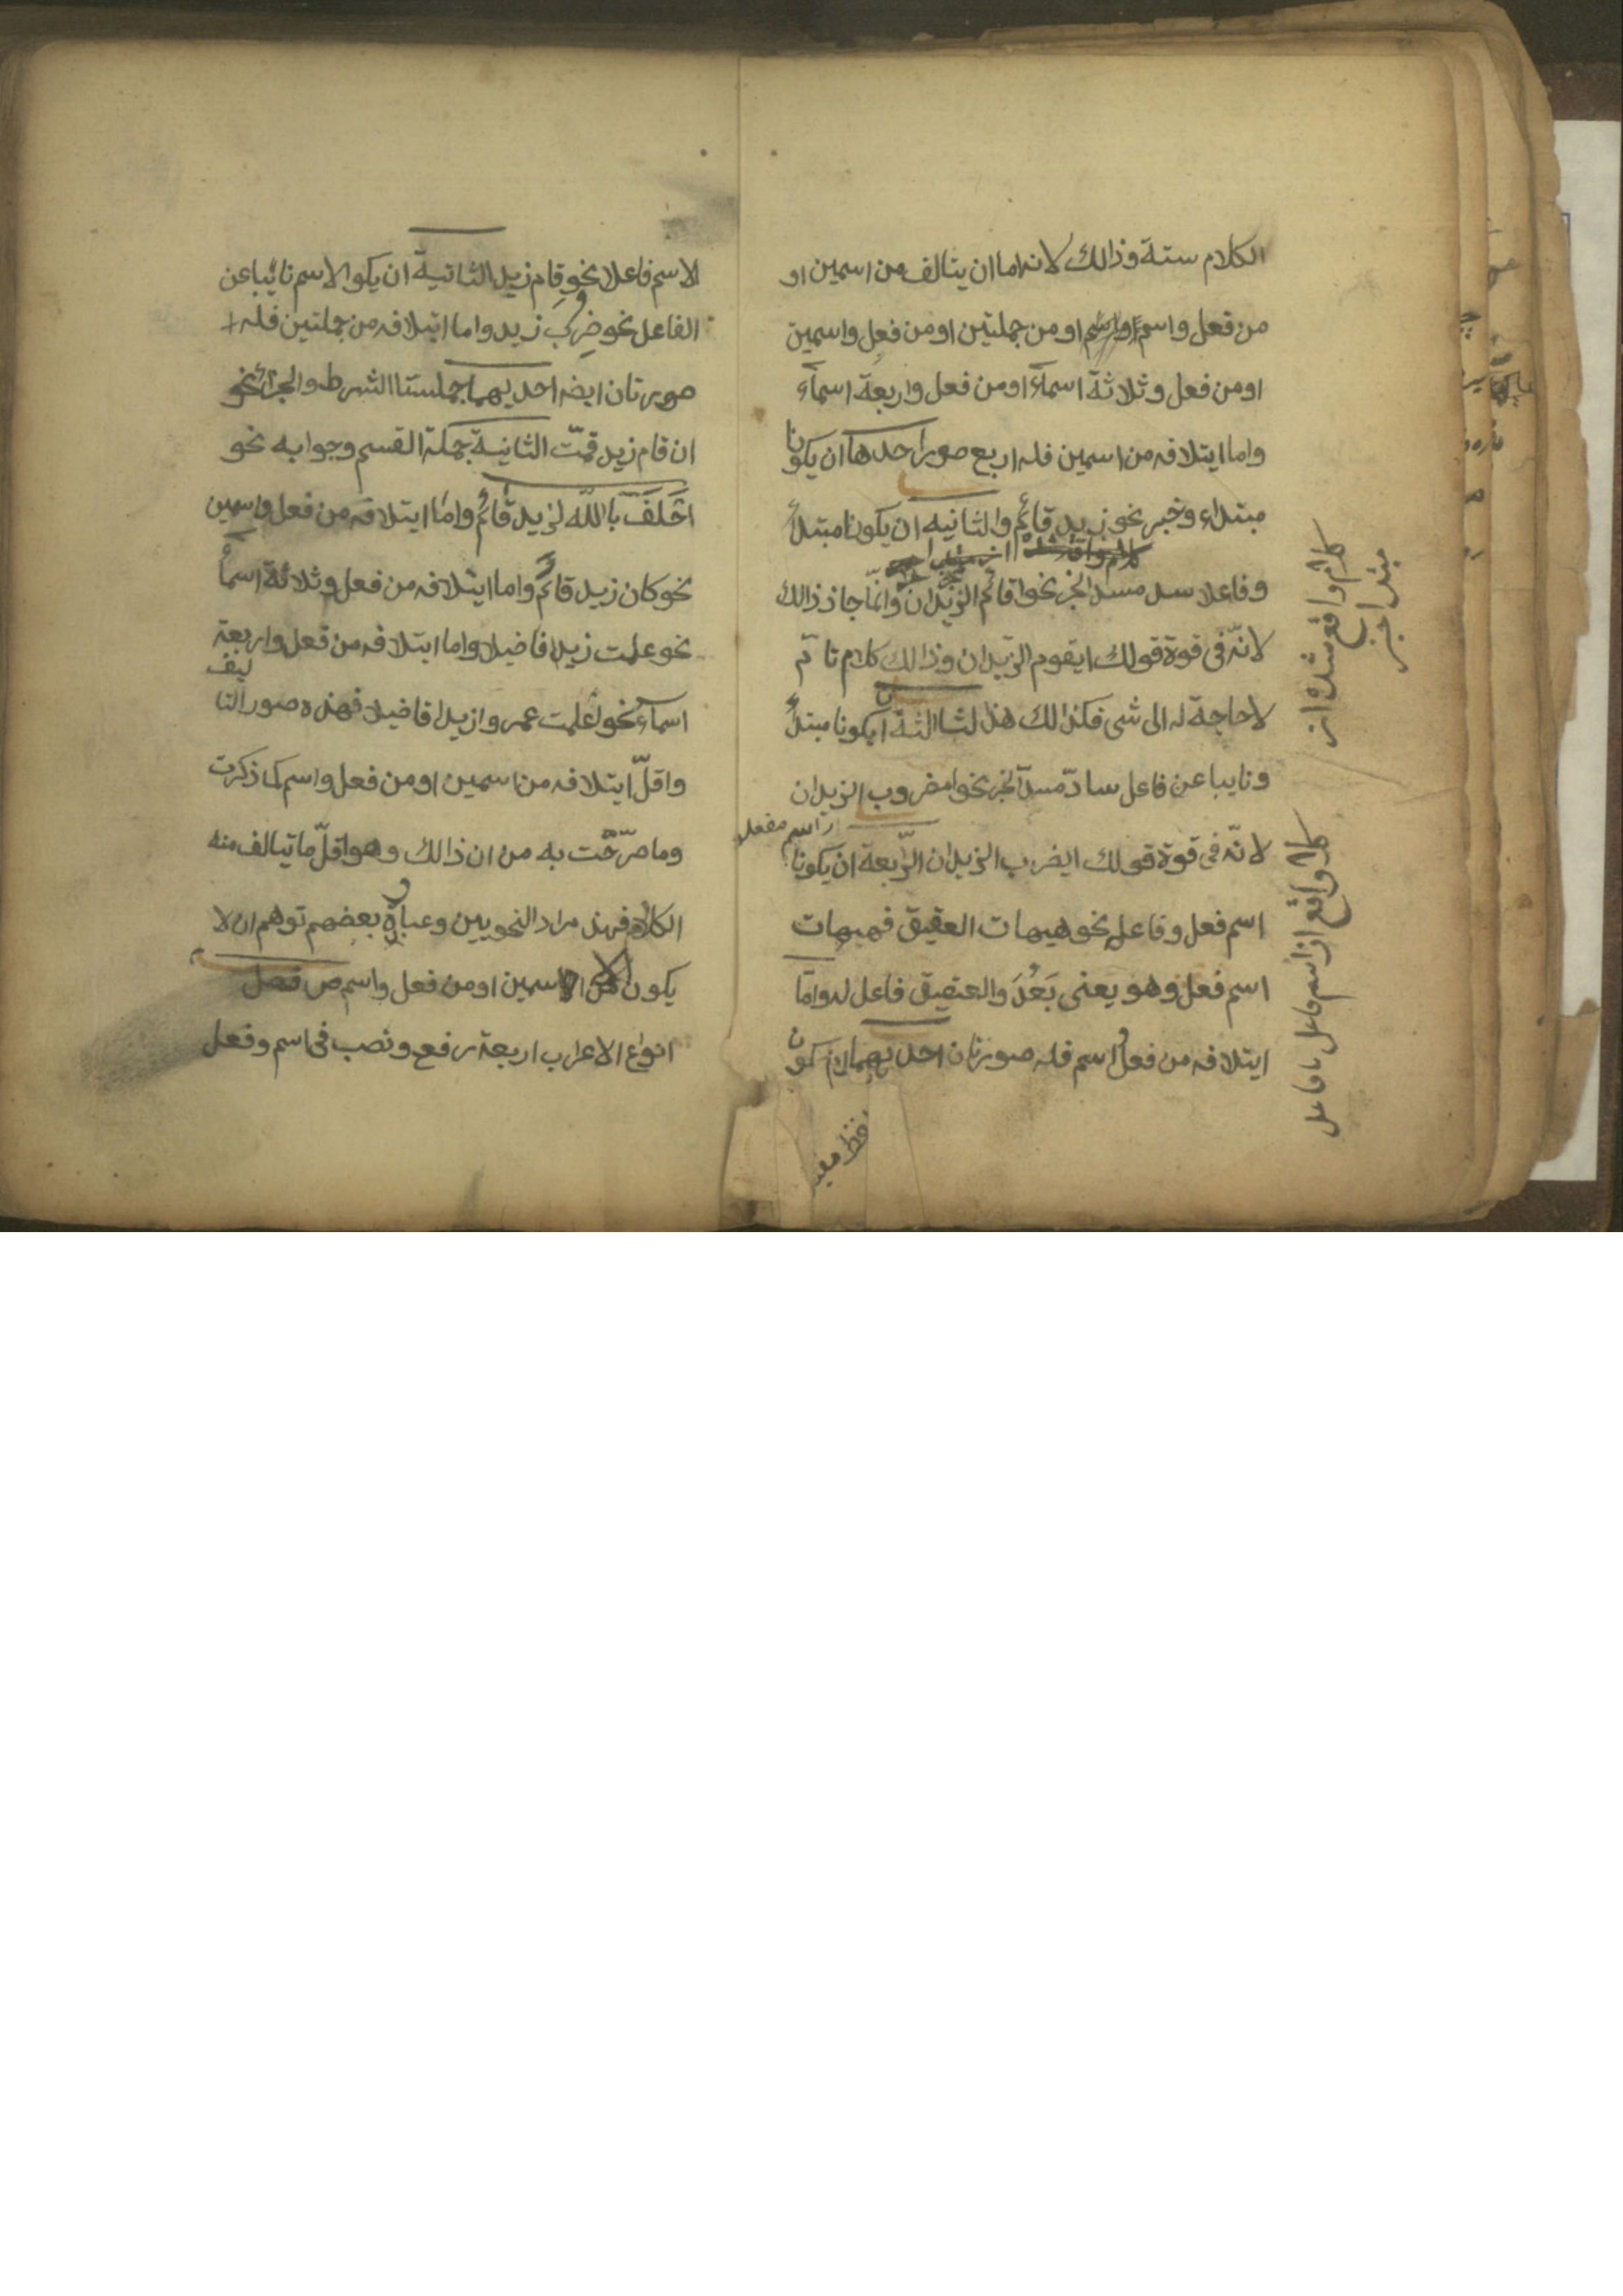 الكلام ستة وذالك لانه اما ان يتالف من اسمين او
من فعل واسم او من جملتين او من فعل واسمين
او من فعل وثلاثة اسماء او من فعل واربعة اسماء
واما ايتلافه من اسمين فله اربع صور احدها ان يكونا
مبتداء وخبر نحو زيد قائم والثانيه ان يكونا مبتدأ
وفاعلا سد مسد الخبر نحو اقائم الزيدان وانما جاز ذالك
لانه فى قوة قولك ايقوم الزيدان وذالك كلام تا م
لا حاجة له الى شى فكذالك هذا لثاالثة ان يكونا مبتدأ
ونايبا عن فاعل سادّ مسدّ الخبر نحو امضروب الزيدان
اسم مفعل
لانّه فى قوة قولك ايضرب الزيدان الرّابعة ان يكونا
اسم فعل وفاعله نحو هيهات العقيق فهيهات
اسم فعل وهو يعنى بَعُدَ والعقيق فاعل له واما
ايتلافه من فعل واسم فله صورتان احديهما ان يكون
كلام واقع شده از
مبتدا خبر
كلام واقع از اسم فاعل با فاعل
الاسم فاعلا نحو قام زيد الثانية ان يكو الاسم نائبا عن
الفاعل نحو ضرب زيد واما ايتلافه من جملتين فله
صورتان ايضه احديهما جملستا الشرط والجزائ نحو
ان قام زيد قمت الثانية جملة القسم وجوابه نحو
احلف با الله لزيد قائم واما ايتلافه من فعل واسمين
نحو كان زيد قائم واما ايتلافه من فعل وثلاثة اسماء
نحو علمت زيدا فاضيلا واما ايتلافه من فعل واربعة
اسماء نحو اعلمت عمر وازيدا فاضيلا فهذه صور التاليف
واقلّ ايتلافه من اسمين او من فعل واسم كما ذكرت
وما صرّحت به من ان ذالك وهو اقلّ ما تيالف منه
الكلام فهذ مراد النحويين وعبارة بعضهم توهم ان لا
يكون الا من اسمين او من فعل واسم ص فصل
انواع الاعراب اربعة رفع ونصب فى اسم وفعل